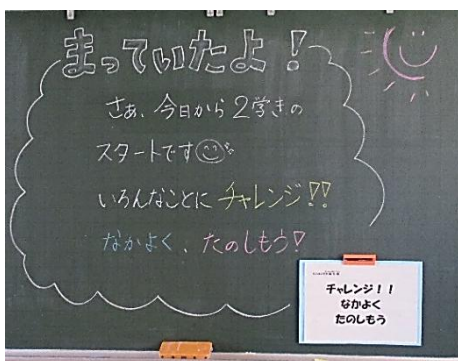 まっていたよ!
さぁ、今日から2学きの
スタートです
いろんなことにチャレンジ!!
なかよく、たのしもう!
チャレンジ!!
なかよく
たのしもう